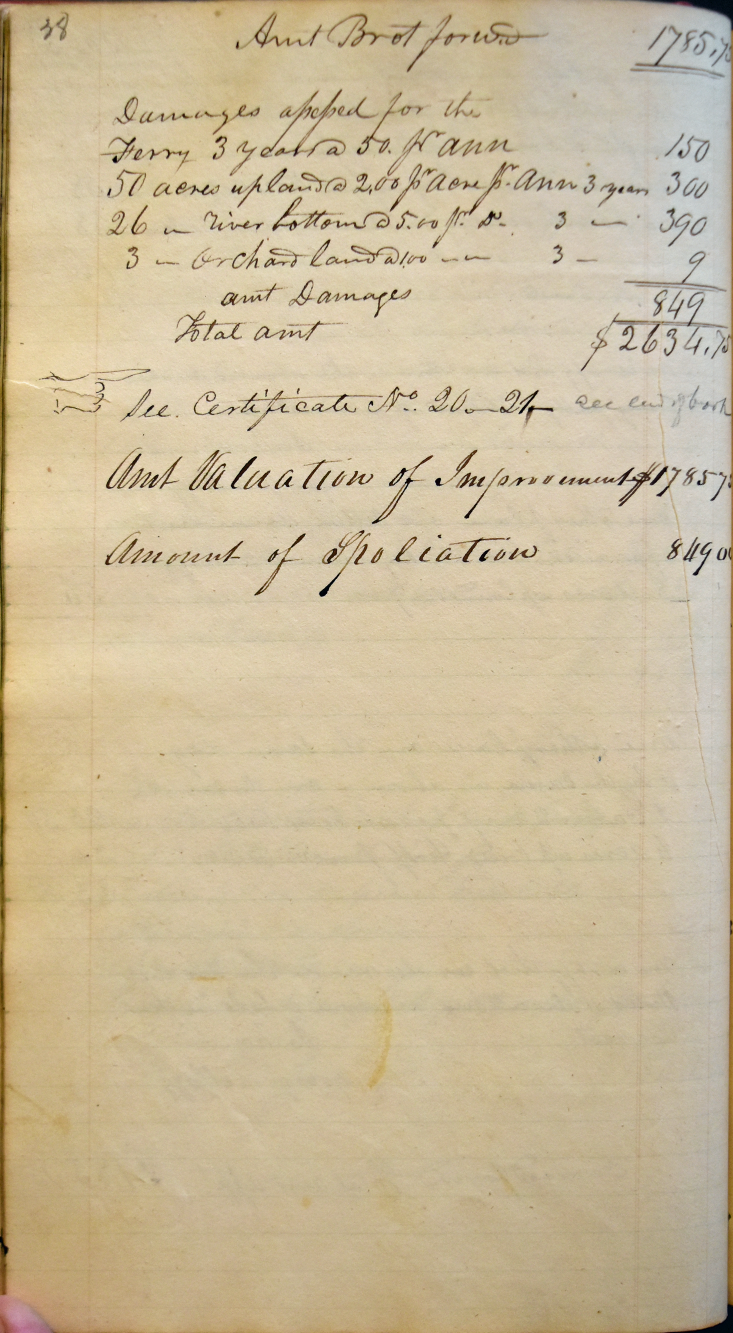 38
Amt Brot forwd 1785.75
Damages assessed for the
Ferry 3 years @ 50. pr ann 150
50 acres upland @ 2,00 pr acre pr. Ann 3 years 300
26 " river bottom @ 5.00 pr. do. 3 " 390
3 " Orchard land @ 1,00 " " 3 " 9
amt Damages 849
Total amt $2634.75
See. Certificate No. 20 - 21 see end of book
Amt Valuation of Improvements $178575
Amount of Spoliation 84900